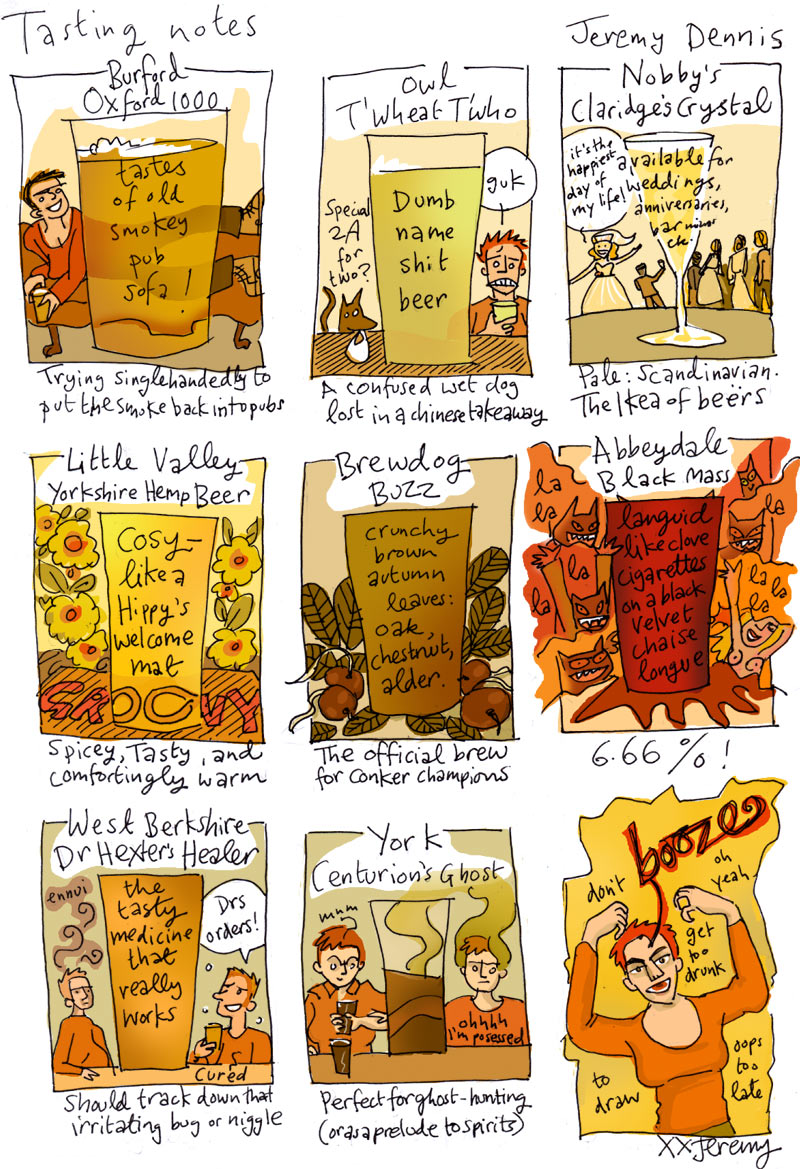 Tasting notes
Jeremy Dennis
Burford
Oxford 1000
tastes
of old
smokey
pub
sofa!
Trying singlehandedly to
put the smoke back into pubs
Owl
T'wheat T'who
Special
2A
for
two?
Dumb
name
shit
beer
guk
A confused wet dog
lost in a chinese takeaway
Nobby's
Claridge's Crystal
it's the
happiest
day of
my life!
available for
weddings,
anniversaries,
bar
etc!
Pale: Scandinavian.
The Ikea of beërs
Little Valley
Yorkshire Hemp Beer
Cosy-
like a
Hippy's
welcome
mat
GROOVY
Spicey, Tasty, and
comfortingly warm
Brewdog
Buzz
crunchy
brown
autumn
leaves:
oak,
chestnut,
alder.
The official brew
for conker champions
Abbeydale
Black Mass
la
la
la
la
la
la
la
la
languid
like clove
cigarettes
on a black
velvet
chaise
longue
6.66 %!
West Berkshire
Dr Hexter's Healer
ennui
the
tasty
medicine
that
really
works
Drs
orders!
Cured
Should track down that
irritating bug or niggle
York
Centurion's Ghost
mnm
ohhhh
I'm posessed
Perfect for ghost-hunting
(or as a prelude to spirits)
booze
don't
oh
yeah
get
too
drunk
to
draw
oops
too
late
xx Jeremy